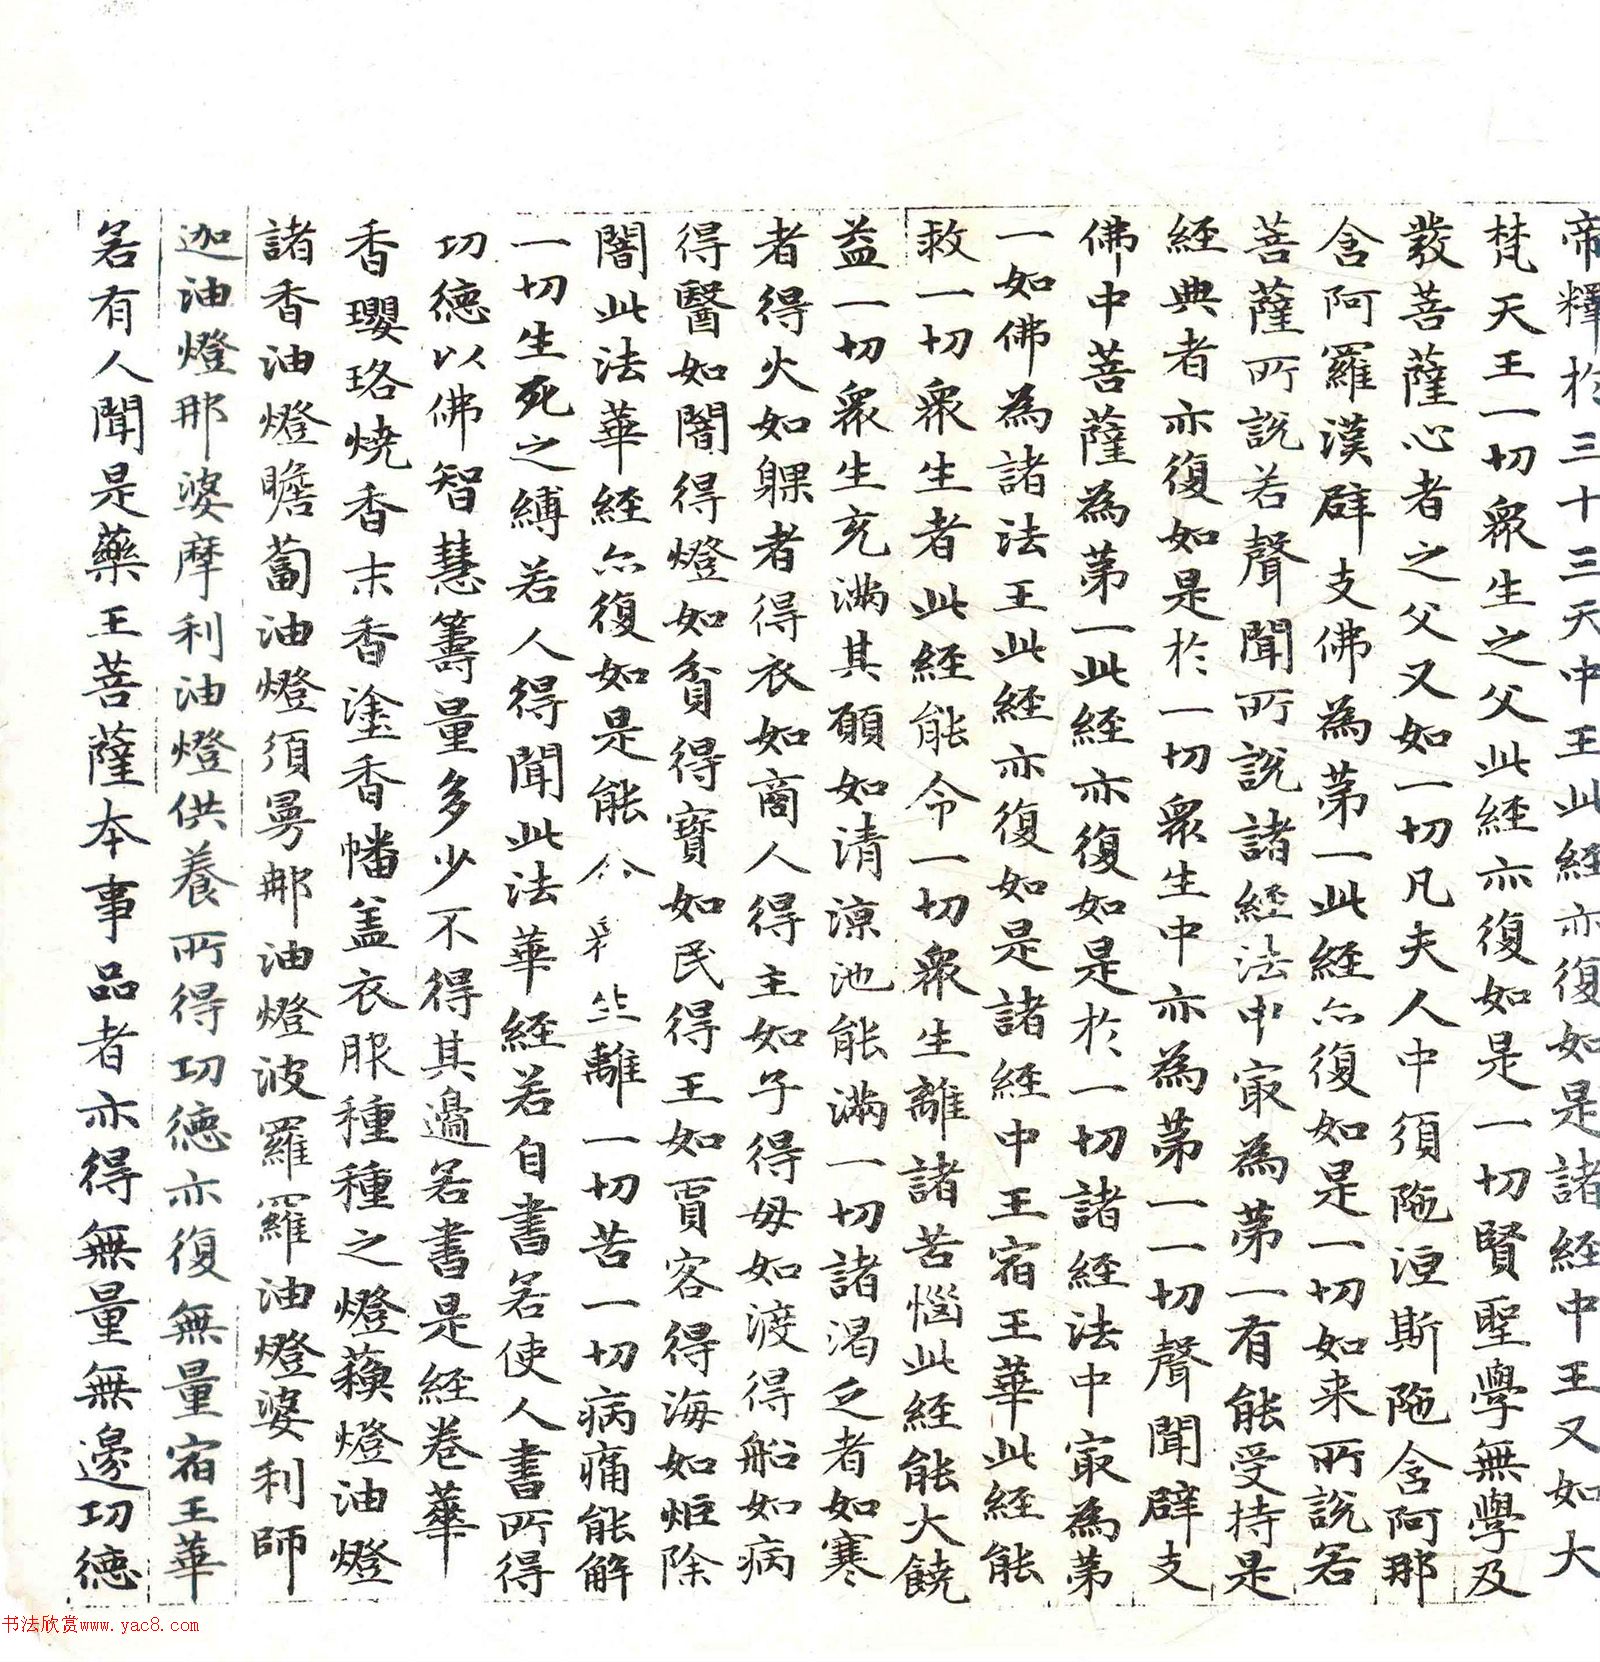 帝釋於三十三天中王此経亦復如是諸経中王又如大
梵天王一切衆生之父此経亦復如是一切賢聖學無學及
發菩薩心者之父又如一切凡夫人中須陁洹斯陁含阿那
含阿羅漢辟支佛為苐一此経亦復如是一切如来所說若
菩薩所說若聲聞所說諸経法中㝡為苐一有能受持是
経典者亦復如是於一切衆生中亦為苐一一切聲聞辟支
佛中菩薩為苐一此経亦復如是於一切諸経法中㝡為苐
一如佛為諸法王此経亦復如是諸経中王宿王華此経能
救一切衆生者此経能令一切衆生離諸苦惱此経能大饒
益一切衆生充滿其願如清涼池能滿一切諸渴乏者如寒
者得火如躶者得衣如商人得主如子得母如渡得船如病
得醫如闇得燈如貧得寶如民得王如賈客得海如炬除
闇此法華経亦復如是能令離一切苦一切病痛能解
一切生死之縛若人得聞此法華経若自書若使人書所得
功德以佛智慧籌量多少不得其邊若書是経卷華
香瓔珞燒香末香塗香幡盖衣服種種之燈蘓燈油燈
諸香油燈瞻蔔油燈須曼那油燈波羅羅油燈婆利師
迦油燈那婆摩利油燈供養所得功德亦復無量宿王華
若有人聞是藥王菩薩本事品者亦得無量無邊功德
书法欣赏www.yac8.com